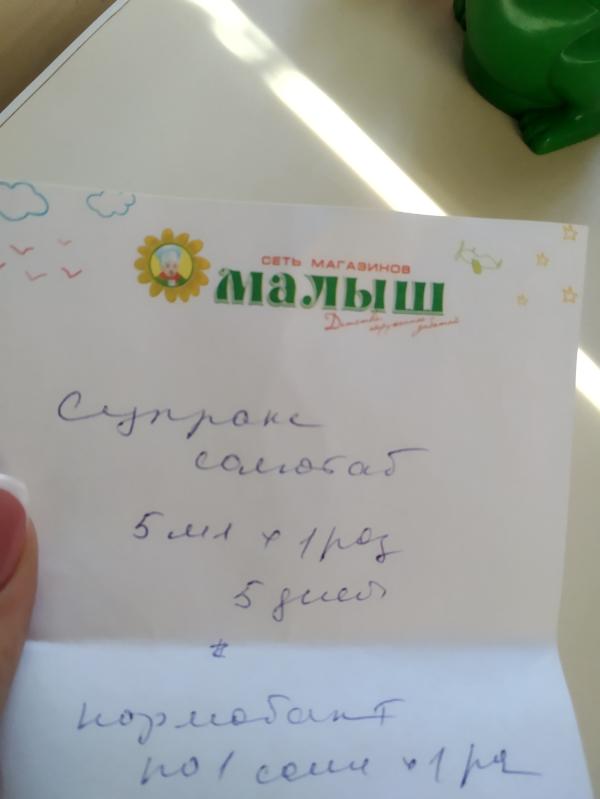 СЕТЬ МАГАЗИНОВ
малыш
Детство, окружённое заботой
Супракс
солютаб
5 мл х 1 раз
5 дней
#
нормобакт
по 1 саше х 1 раз